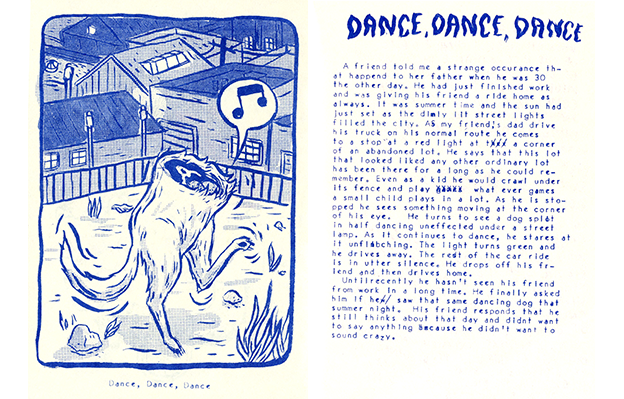 Dance, Dance, Dance
DANCE, DANCE, DANCE
A friend told me a strange occurance th-
at happend to her father when he was 30
the other day. He had just finished work
and was giving his friend a ride home as
always. It was summer time and the sun had
just set as the dimly lit street lights
filled the city. AS my friend,s dad drive
his truck on his normal route he comes
to a stop at a red light at a corner
of an abandoned lot. He says that this lot
that looked liked any other ordinary lot
has been there for a long as he could re-
member. Even as a kid he would crawl under
its fence and play what ever games
a small child plays in a lot. As he is sto-
pped he sees something moving at the corner
of his eye. He turns to see a dog split
in half dancing uneffected under a street
lamp. As it continues to dance, he stares at
it unflinching. The light turns green and
he drives away. The rest of the car ride
is in utter silence. He drops off his fr-
iend and then drives home.
Untilrecently he hasn't seen his friend
from work in a long time. He finally asked
him if he saw that same dancing dog that
summer night. His friend responds that he
still thinks about that day and didnt want
to say anything Because he didn't want to
sound crazy.